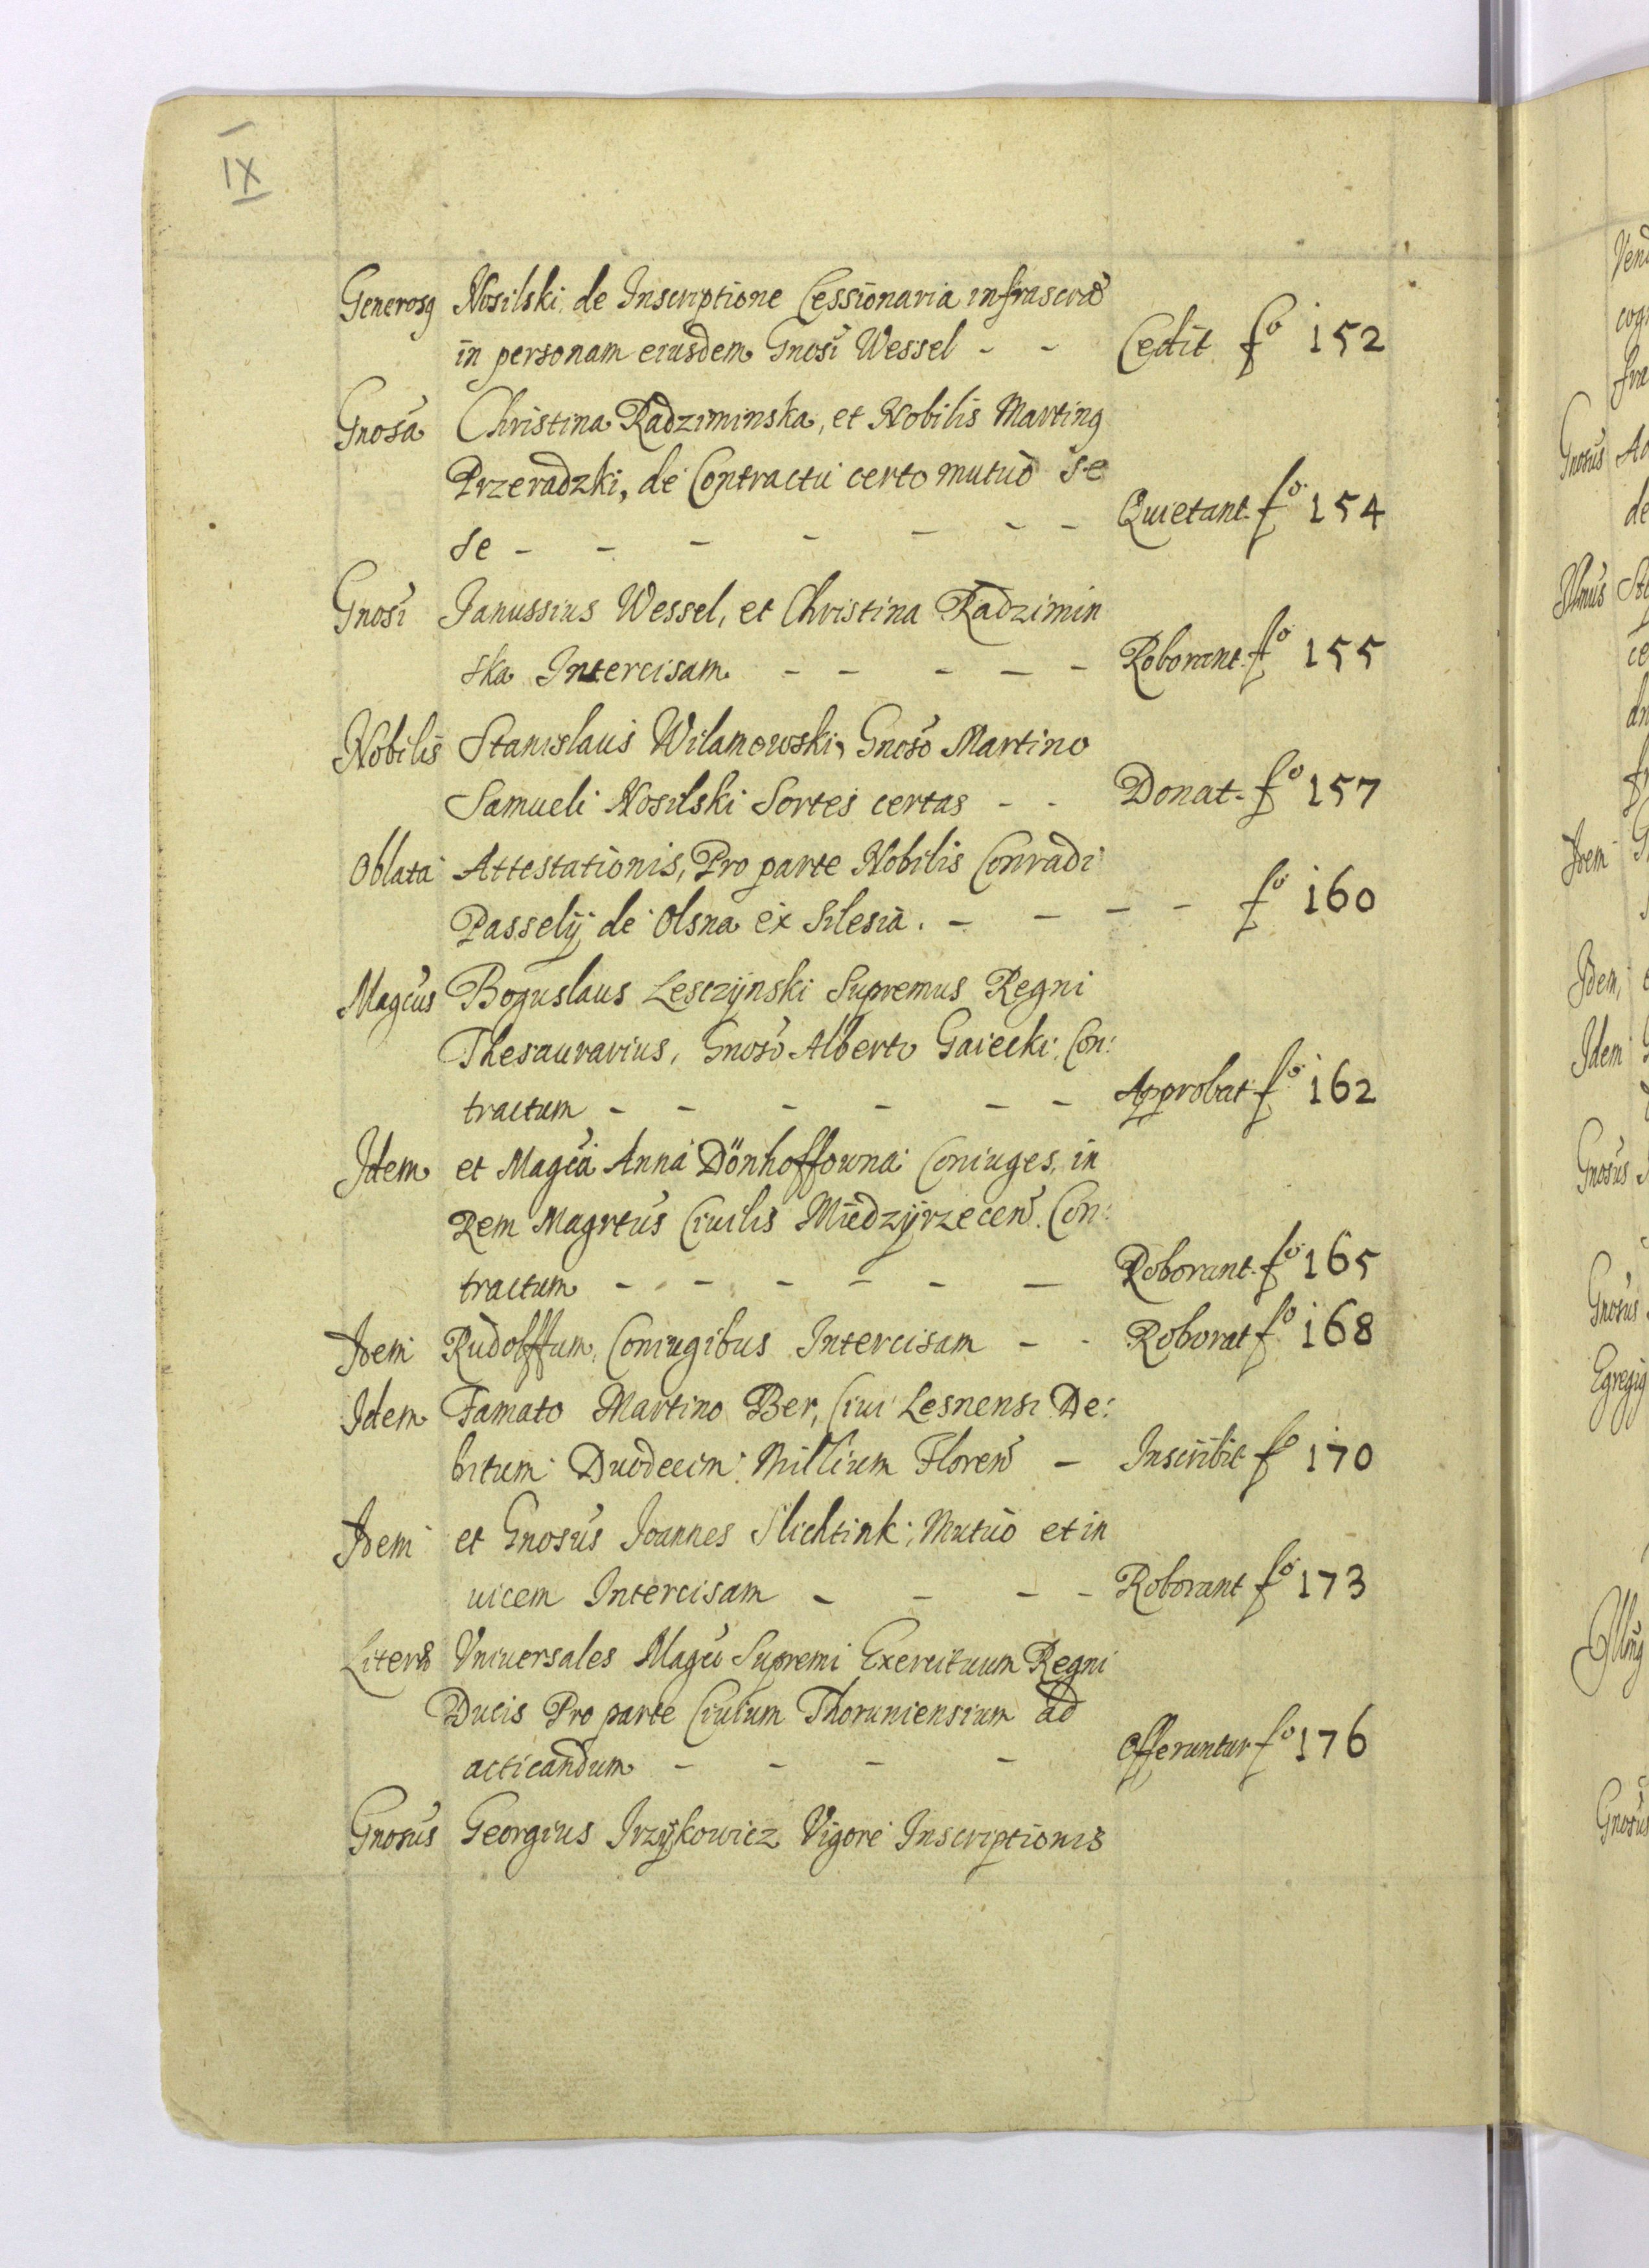 IX
Generosq Nosilski de Inscriptione Cessionaria infrascrõ
in personam eiusdem Gnosi Wessel - - Cedit fo 152
Gnosa Christina Radziminska, et Nobilis Martinq
Przeradzki, de Contractu certo mutuo se
se - - - - - - - Quietant fo 154
Gnosi Janussius Wessel, et Christina Radzimin
ska Intercisam - - - - - Roborant fo 155
Nobilis Stanislaus Wilamowski, Gnoso Martino
Samueli Nosilski Sortes certas - - Donat fo 157
Oblata Attestationis, Pro parte Nobilis Conradi
Passelij de Olsna ex Silesia. - - - - fo 160
Magcus Boguslaus Lesczijnski Supremus Regni
Thesaurarius, Gnoso Alberto Gaiecki Con:
tractum - - - - - - Approbat fo 162
Idem et Magca Anna Dönhoffowna Coniuges, in
Rem Magrtus Ciuilis Miedzijrzecen. Con:
tractum - - - - - - Roborant fo 165
Idem Rudolffum, Coniugibus Intercisam - - Roborat fo 168
Idem Famato Martino Ber, Ciui Lesnensi De:
bitum Duodecim Millium Floren - Inscribit fo 170
Idem et Gnosus Joannes Slichtink Mutuo et in
uicem Intercisam - - - - Roborant fo 173
Literæ Vniuersales Magci Supremi Exercituum Regni
Ducis Pro parte Ciuium Thoruniensium ad
acticandum - - - - Offeruntur fo 176
Gnosus Georgius Irzÿkowicz Vigore Inscriptionis